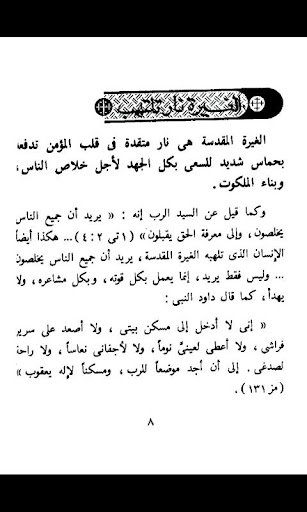 الغيرة نار تلتهب
الغيرة المقدسة هى نار متقدة فى قلب المؤمن تدفعه
بحماس شديد للسعى بكل الجهد لأجل خلاص الناس،
وبناء الملكوت .
وكما قيل عن السيد الرب إنه : « يريد أن جميع الناس
يخلصون، وإلى معرفة الحق يقبلون » (١تى ٢ : ٤)... هكذا أيضاً
الإنسان الذى تلهبه الغيرة المقدسة، يريد أن جميع الناس يخلصون
... وليس فقط يريد، إنما يعمل بكل قوته، وبكل مشاعره، ولا
يهدأ، كما قال داود النبى :
« إنى لا أدخل إلى مسكن بيتى ، ولا أصعد على سرير
فراشى ، ولا أعطى لعينىَّ نوماً ، ولا لأجفانى نعاساً ، ولا راحة
لصدغى . إلى أن أجد موضعاً للرب ، ومسكناً لإله يعقوب »
( مز ١٣١ ) .
٨